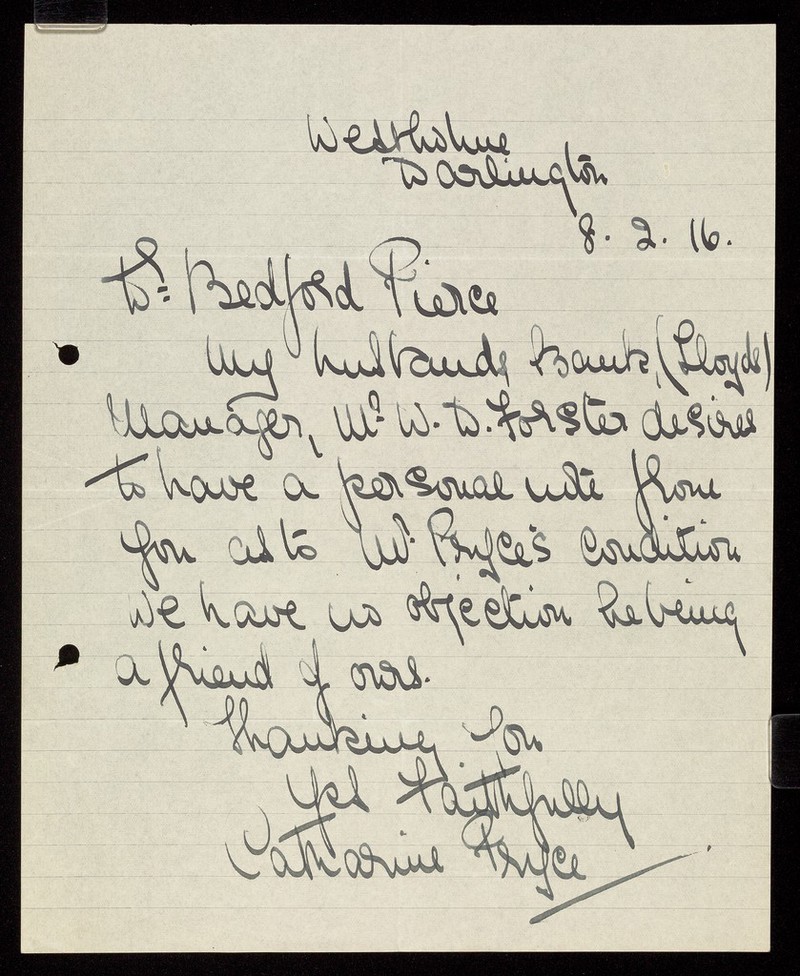 Westholme
Darlington
8. 2. 16.
Dr: Bedford Pierce
My husbands Bank, (Lloyds)
Manager, Mr W. D. Forster desires
to have a personal note from
you as to Mr. Pryce's condition
We have no objection he being
a friend of ours.
Thanking You
Yrs Faithfully
Catharine Pryce